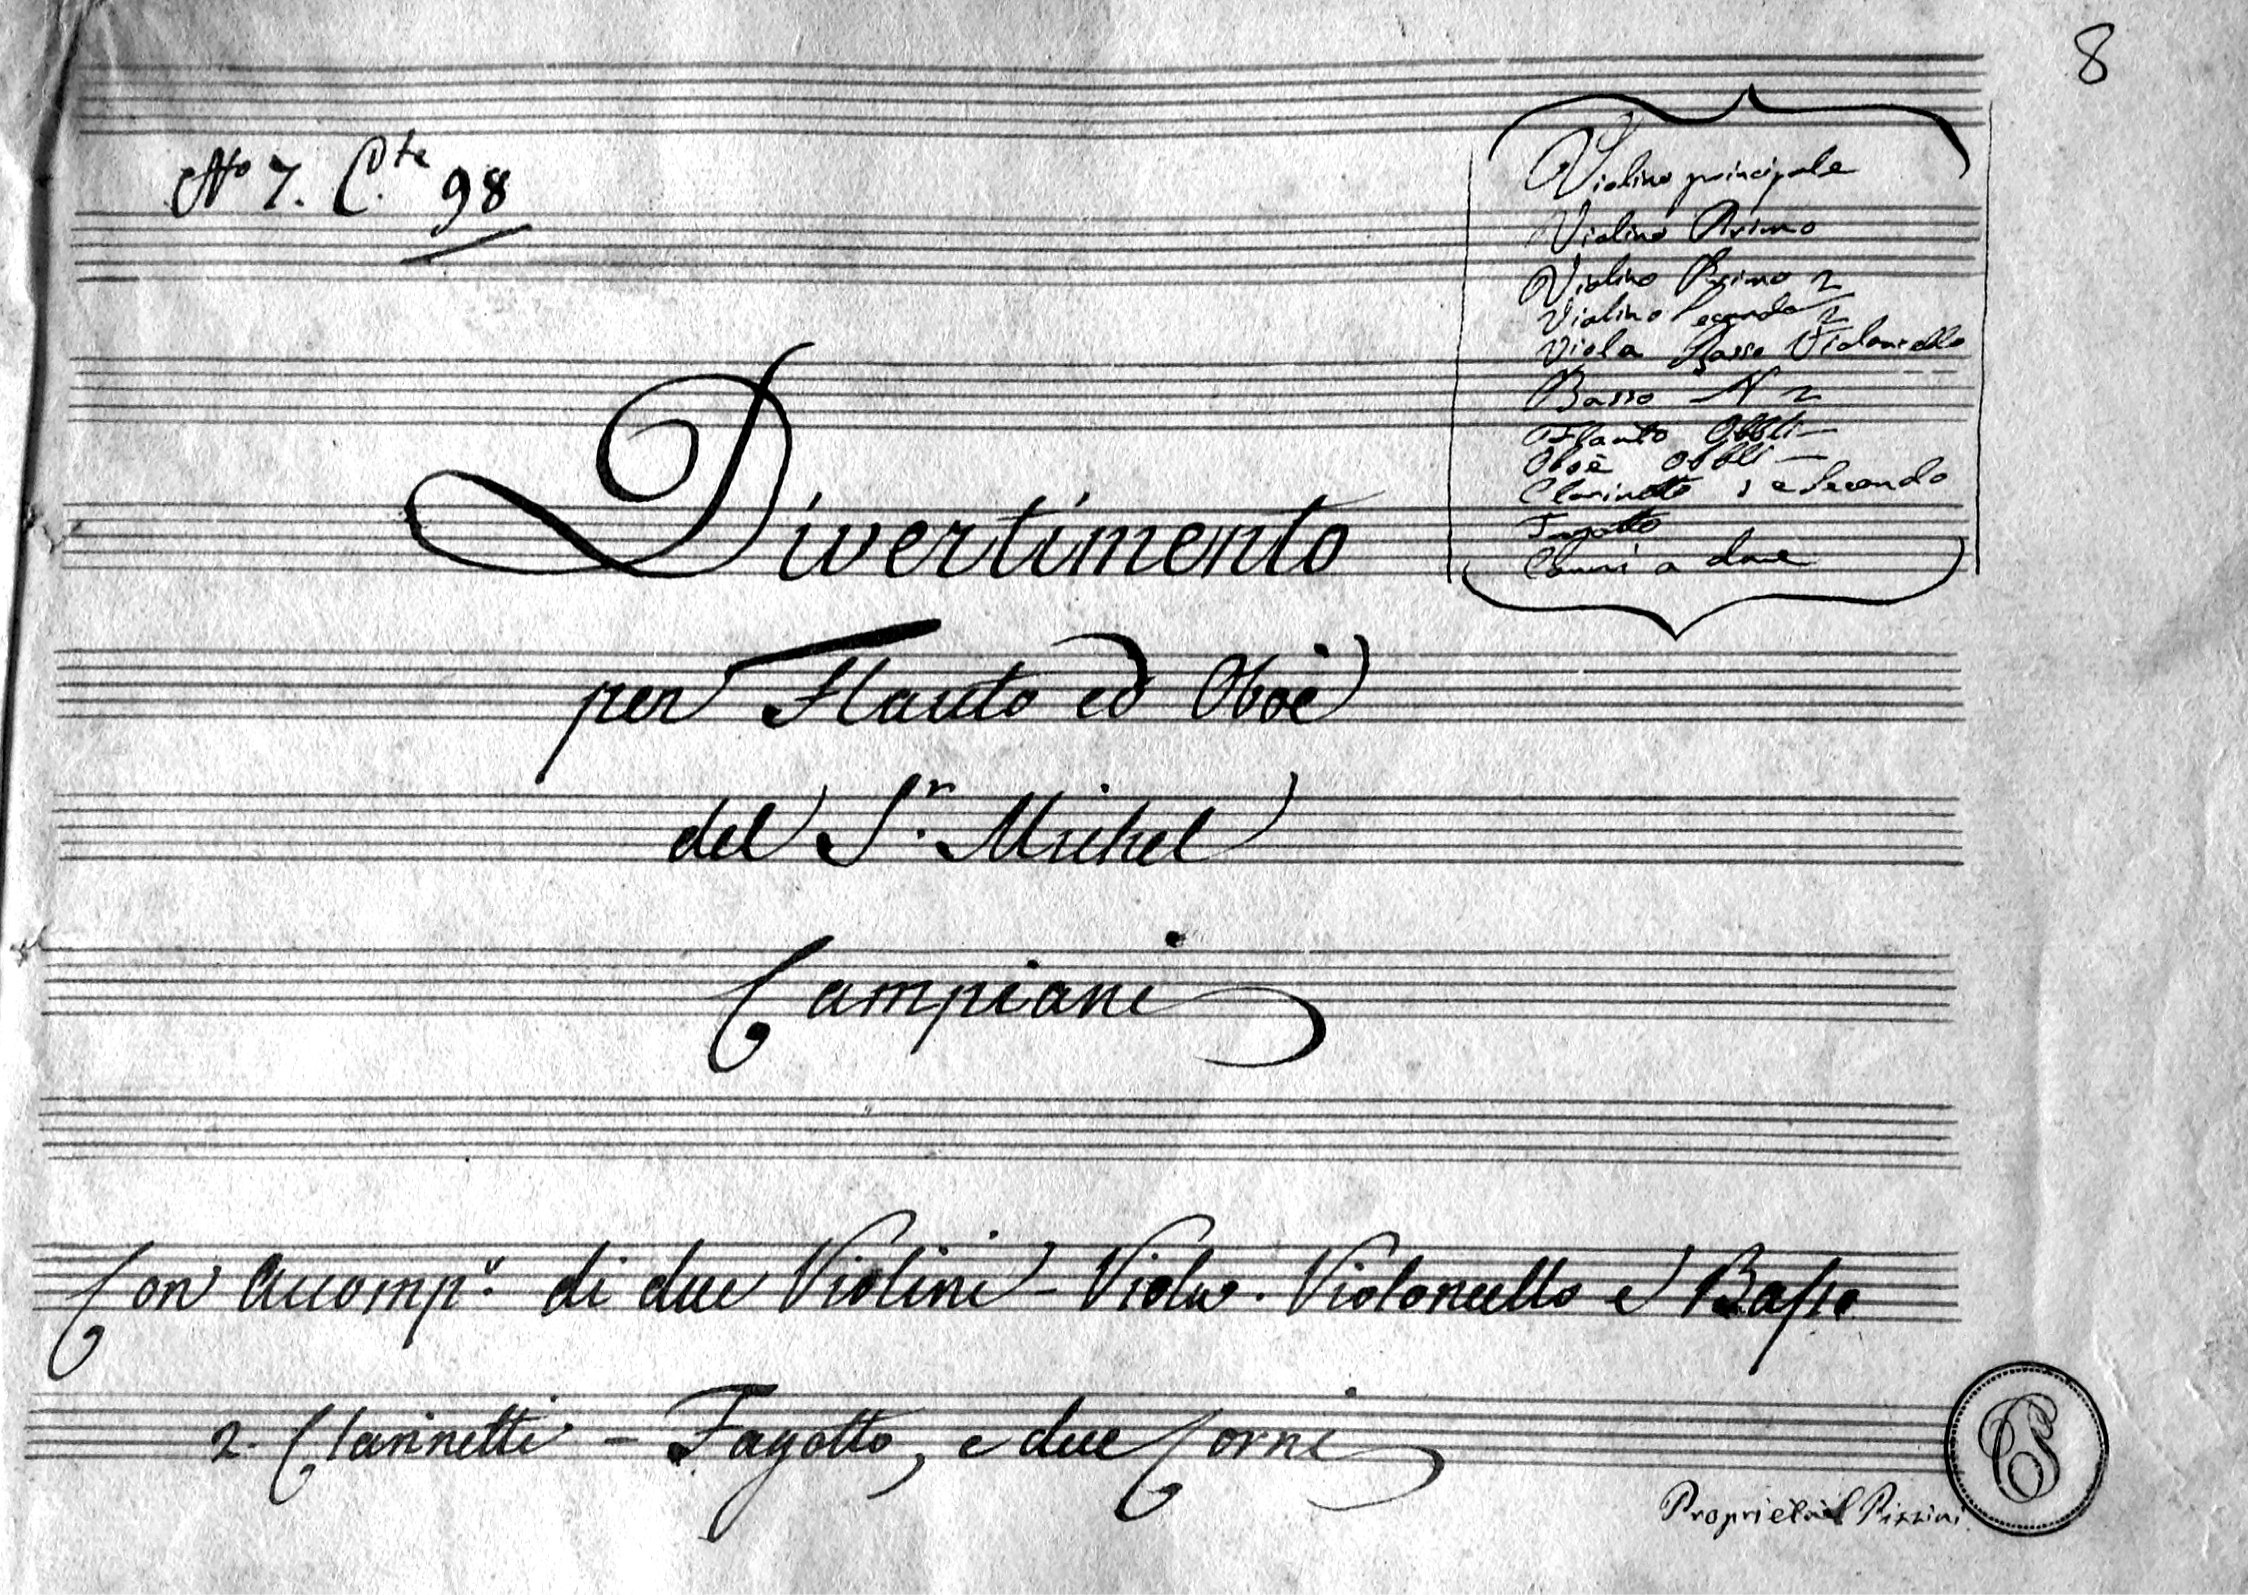 8
No 7. C.te 98
Violino principale
Violino Primo
Violino Primo 2
Violino Secondo 2
Viola Basso Violoncello
Basso N 2
Flauto Obbli—
Oboè obbli—
Clarinetto 1 e Secondo
Fagotto
Corni a due
Divertimento
per Flauto ed Oboè
del S.r Michel
Campiani
Con Accomp.o di due Violini - Viola. Violoncello e Basso
2. Clarinetti - Fagotto, e due Corni
Proprietà Pizzini